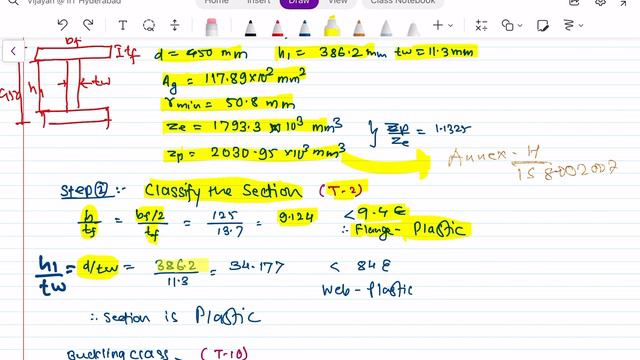 Vijayan @ IIT Hyderabad
Insert
Draw
View
Class Notebook
bf
tf
d = 450 mm h1 = 386.2 mm tw = 11.3 mm
h1 tw
450
Ag = 117.89 x 10² mm²
rmin = 50.8 mm
Ze = 1793.3 x 10³ mm³
} Zp/Ze = 1.1325
Zp = 2030.95 x 10³ mm³
Annex - H
IS 800 2007
Step ② :- Classify the Section (T-2)
b/tf = bf/2/tf = 125/13.7 = 9.124 < 9.4 ε
∴ Flange - Plastic
h1/tw = d/tw = 386.2/11.3 = 34.177 < 84 ε
Web - plastic
∴ Section is Plastic
Buckling class = (T-10)